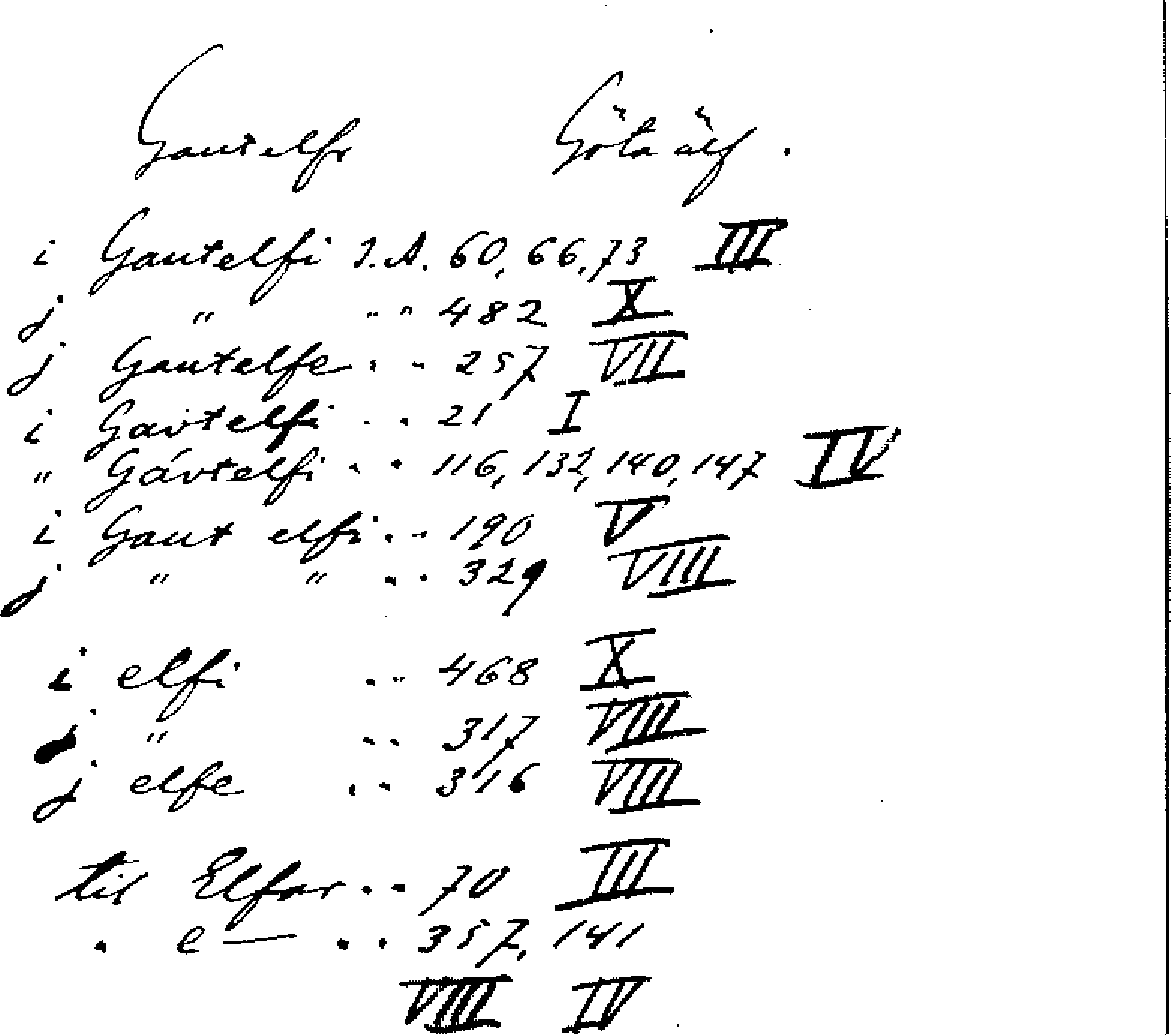 Gautelfr Göta älf.
i Gautelfi I.A. 60, 66, 73 III
j " " " 482 X
j Gautelfe " " 257 VII
i Gavtelfi " " 21 I
" Gávtelfi " " 116, 132, 140, 147 IV
i Gaut elfi " " 190 V
j " " " " 329 VIII
i elfi " " 468 X
j " " " 317 VIII
j elfe " " 316 VIII
til Elfar " " 70 III
" e— " " 357, 141
VIII IV